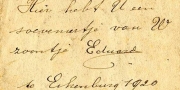 Hier hebt U een
souveniertje van W
zoontje Eduard
to Erkenburg 1920